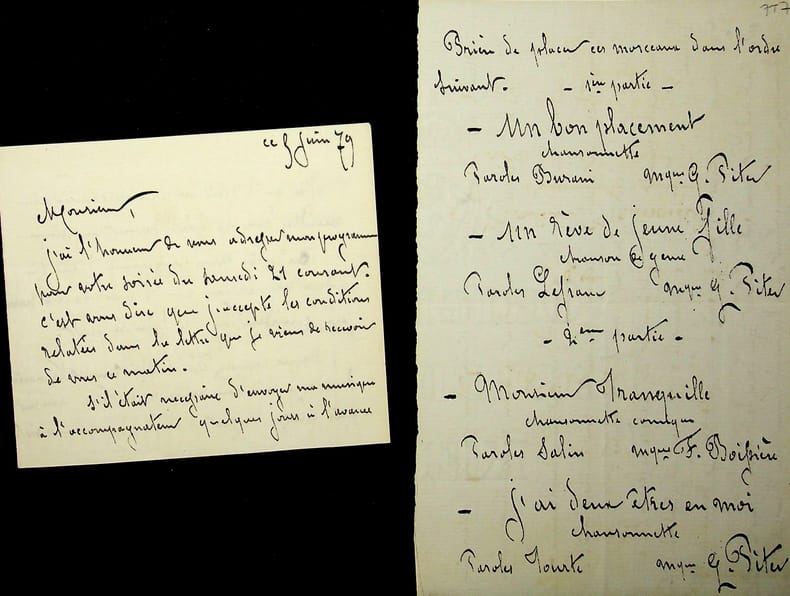 ce 5 Juin 79
Monsieur,
j'ai l'honneur de vous adresser mon programme
pour votre soirée du samedi 21 courant.
c'est vous dire que j'accepte les conditions
relatées dans la lettre que je viens de recevoir
de vous ce matin.
S'il était necessaire d'envoyer ma musique
à l'accompagnateur quelques jours à l'avance
717
Prière de placer ces morceaux dans l'ordre
suivant. - 1ère partie -
- Un bon placement
chansonnette
Paroles Burani mque G. Piter
- Un rêve de jeune Fille
chanson de genre
Paroles mque G. Piter
- 2eme partie -
- Monsieur Tranquille
chansonnette comique
Paroles Salin mque F. Boissière
- j'ai deux êtres en moi
chansonnette
Paroles Jourte mque G. Piter